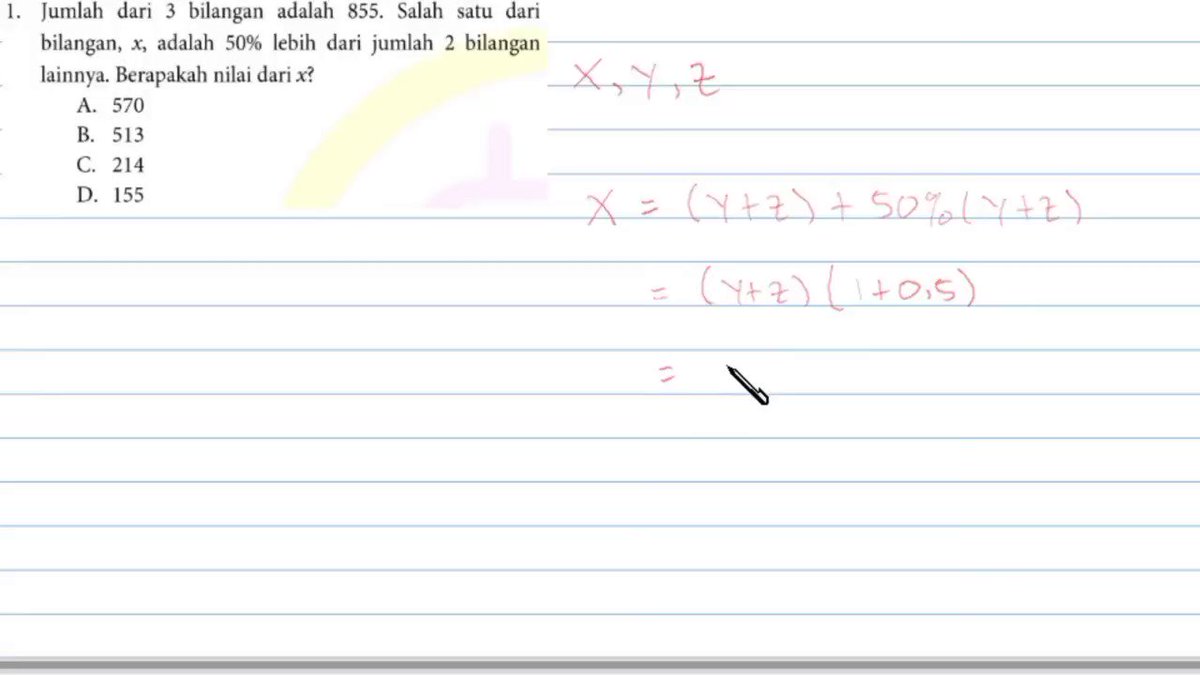 1. Jumlah dari 3 bilangan adalah 855. Salah satu dari
bilangan, x, adalah 50% lebih dari jumlah 2 bilangan
lainnya. Berapakah nilai dari x?
A. 570
B. 513
C. 214
D. 155
X, Y, Z
X = (Y+Z) + 50% (Y+Z)
= (Y+Z) (1+0,5)
=